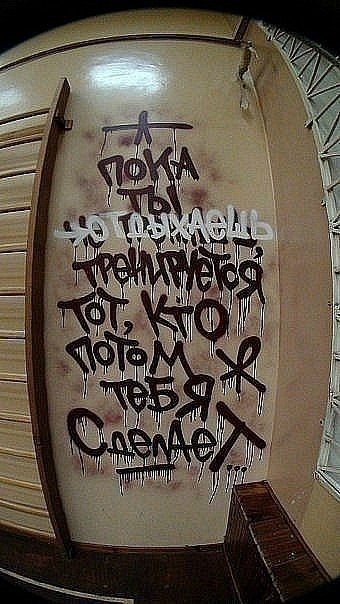 А
ПОКА
ТЫ
ОТДЫХАЕШЬ,
ТРЕНИРУЕТСЯ
ТОТ, КТО
ПОТОМ Ж
ТЕБЯ
СДЕЛАЕТ...